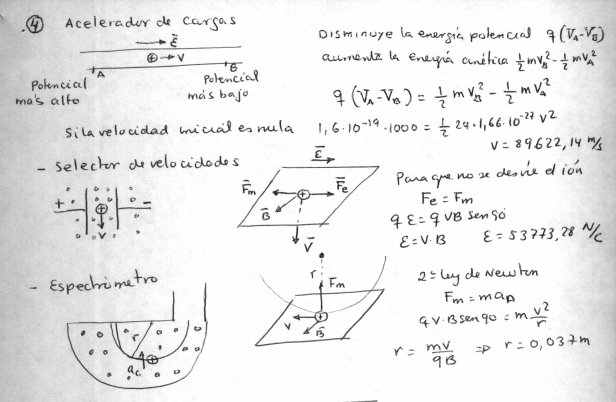 ④ Acelerador de cargas
Ē
+ V
A B
Potencial más alto
Potencial más bajo
Disminuye la energía potencial q(V_A-V_B)
aumenta la energía cinética 1/2 mV_B² - 1/2 mV_A²
q (V_A-V_B) = 1/2 m V_B² - 1/2 m V_A²
Si la velocidad inicial es nula 1,6·10⁻¹⁹·1000 = 1/2 24·1,66·10⁻²⁷ V²
V = 89622,14 m/s
- Selector de velocidades
+ + -
V
Ē
F̄m + F̄e
B̄
V̄
Para que no se desvíe el ión
Fe = Fm
q Ɛ = q V B sen 90
Ɛ = V·B Ɛ = 53773,28 N/C
- Espectrómetro
r
+
a_c
r Fm
V + B̄
2ª ley de Newton
Fm = m a_n
q V·B sen 90 = m V²/r
r = mV/qB => r = 0,037 m